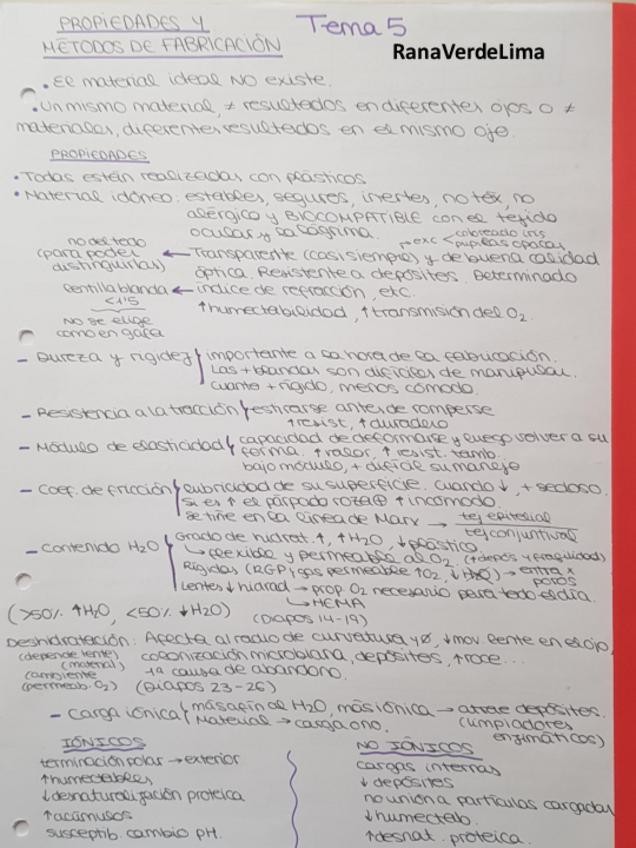 PROPIEDADES Y
MÉTODOS DE FABRICACIÓN
Tema 5
RanaVerdeLima
• El material ideal NO existe.
• Un mismo material, ≠ resultados en diferentes ojos o ≠
materiales, diferentes resultados en el mismo ojo.
PROPIEDADES
• Todas están realizadas con plásticos
• Material idóneo: estables, seguros, inertes, no tóx, no
alérgico y BIOCOMPATIBLE con el tejido
ocular y la lágrima.
exc < coloreado iris
pupilas opacas
no del todo
(para poder
distinguirlas)
← Transparente (casi siempre) y de buena calidad
óptica. Resistente a depósitos. Determinado
lentilla blanda ← índice de refracción, etc.
<1'5
↑humectabilidad, ↑transmisión del O₂.
No se elige
como en gafa
- Dureza y rigidez { importante a la hora de la fabricación.
Las + blandas son difíciles de manipular.
Cuanto + rígido, menos cómodo.
- Resistencia a la tracción { estirarse antes de romperse
↑resist, ↑duradero
- Módulo de elasticidad { capacidad de deformarse y luego volver a su
forma. ↑valor, ↑resist. tamb.
bajo módulo, + difícil su manejo
- Coef. de fricción { lubricidad de su superficie. Cuando ↓, + sedoso.
si es ↑ el párpado roza ⊕ ↑incómodo
se tiñe en la línea de Marx → tej epitelial
tej conjuntival
- Contenido H₂O { Grado de hidrat. ↑, ↑H₂O, ↓plástico
↳ flexible y permeable al O₂. (↑depós y fragilidad)
Rígidas (RGP) gas permeable ↑O₂, ↓H₂O) → entra x
poros
Lentes ↓hidrad → prop O₂ necesario para todo el día.
↳ HEMA
(>50% ↑H₂O, <50% ↓H₂O)
(Diapos 14-19)
Deshidratación: Afecta al radio de curvatura y Ø, ↓mov. lente en el ojo,
(depende lente)
(material)
(ambiente
(permeab. O₂)
colonización microbiana, depósitos, ↑roce...
1ª causa de abandono.
(Diapos 23-26)
- Carga iónica { más afín al H₂O, más iónica → atrae depósitos.
Material → carga o no.
(limpiadores
enzimáticos)
IÓNICOS
terminación polar → exterior
↑humectables
↓desnaturalización proteica
↑acúmulos
susceptib. cambio pH.
NO IÓNICOS
cargas internas
↓ depósitos
no unión a partículas cargadas
↓humectab.
↑desnat. proteica.